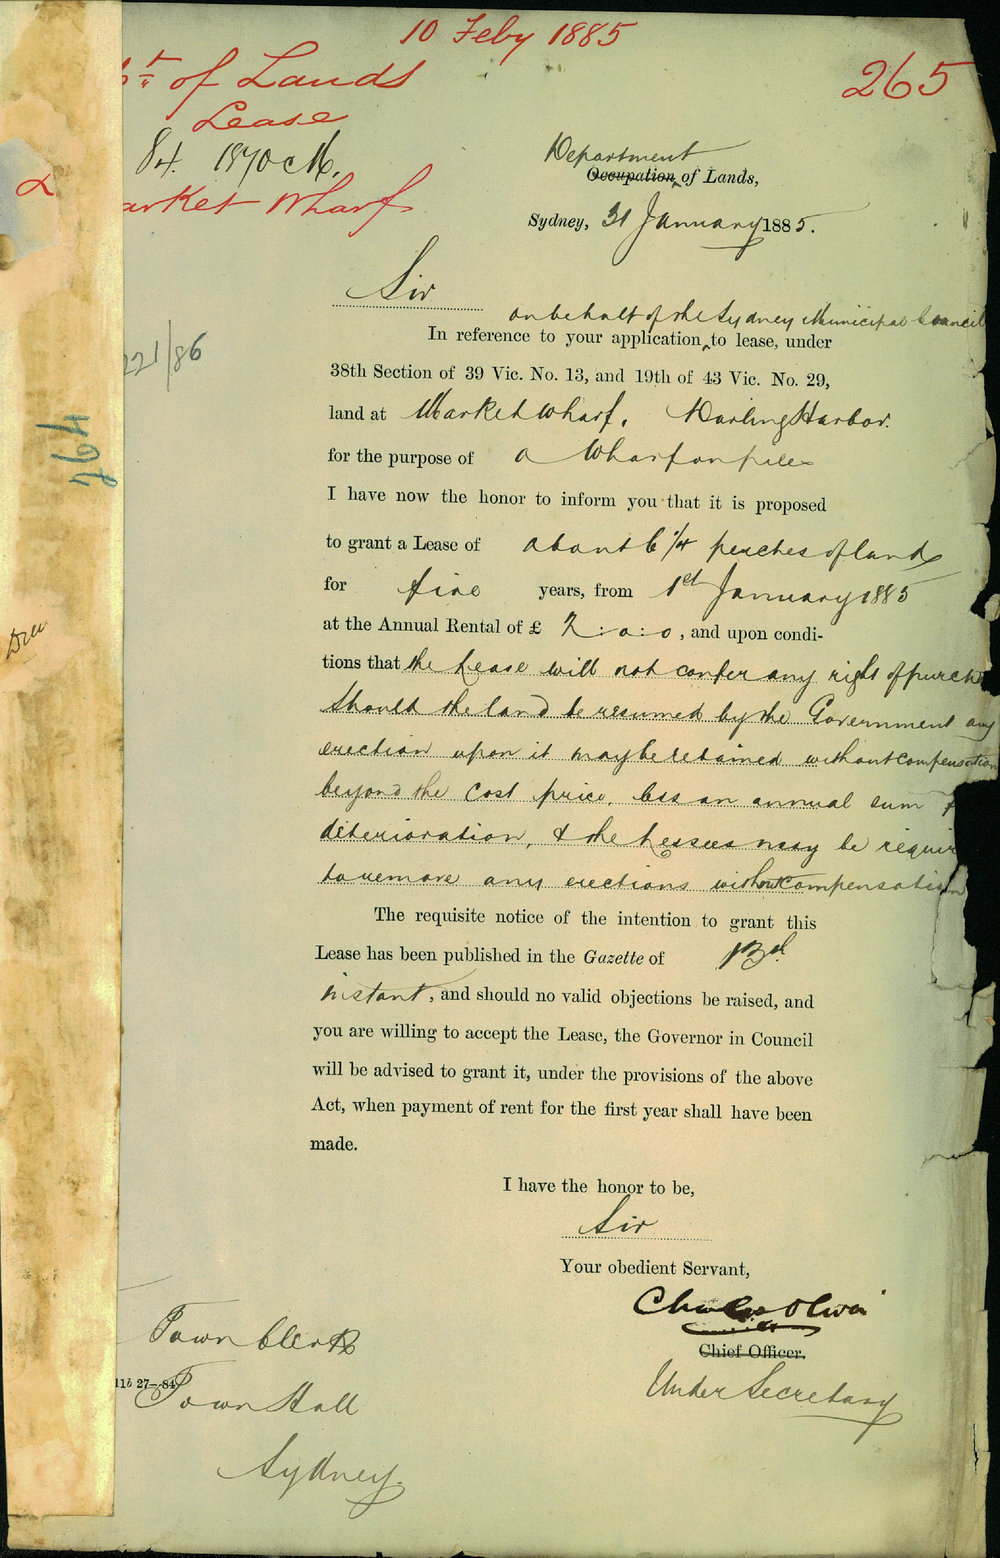 10 Feby 1885
265
of Lands
Lease
84. 1870 M.
arket Wharf
Department
Occupation of Lands,
Sydney, 31 January 1885.
Sir
on behalf of the Sydney Municipal Council
In reference to your application, to lease, under
38th Section of 39 Vic. No. 13, and 19th of 43 Vic. No. 29,
221/86
land at Market Wharf, Darling Harbor.
264
for the purpose of a Wharf on piles
I have now the honor to inform you that it is proposed
to grant a Lease of about 6 1/4 perches of land
for five years, from 1st January 1885
at the Annual Rental of £ 2:0:0, and upon condi-
tions that the Lease will not confer any right of purch
Should the land be resumed by the Government any
erection upon it may be retained without compensation
beyond the cost price, less an annual sum f
deterioration, & the Lessees may be requir
to remove any erections without compensation
The requisite notice of the intention to grant this
Lease has been published in the Gazette of
instant, and should no valid objections be raised, and
you are willing to accept the Lease, the Governor in Council
will be advised to grant it, under the provisions of the above
Act, when payment of rent for the first year shall have been
made.
I have the honor to be,
Sir
Your obedient Servant,
Charles Oliver
Chief Officer.
Under Secretary
Town Clerk
11b 27—84
Town Hall
Sydney.